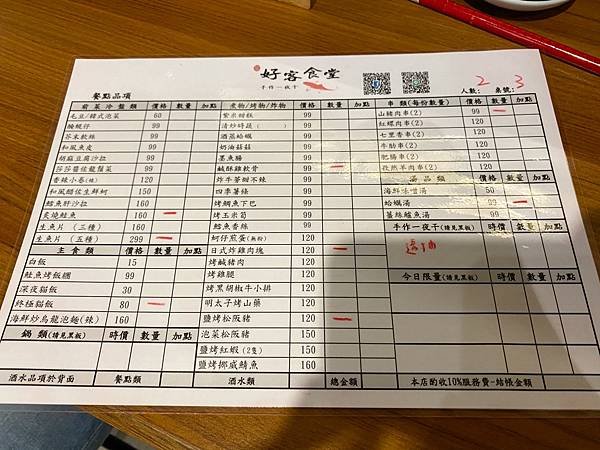 好客食堂
手作一夜干
人數: 2 桌號: 3
餐點品項
前菜冷盤類 價格 數量 加點
毛豆/韓式泡菜 60
梅蜆仔 99
芥末軟絲 99
和風魚皮 99
胡麻豆腐沙拉 99
莎莎醬佐龍鬚菜 99
香辣小卷(辣) 120
和風醋佐生鮮蚵 150
鱈魚肝沙拉 160
炙燒鮭魚 160 一
生魚片 (三種) 160
生魚片 (五種) 299 一
主食類 價格 數量 加點
白飯 15
鮭魚烤飯糰 99
深夜貓飯 30
終極貓飯 80 一
海鮮炒烏龍泡麵(辣) 160
鍋類(請見黑板) 時價 數量 加點
煮物/烤物/炸物 價格 數量 加點
紫米甜糕 99
清炒時蔬( ) 99
酒蒸蛤蜊 99
奶油菇菇 99
墨魚腸 99
鹹酥雞軟骨 99 一
炸牛蒡甜不辣 99
四季薯條 99
烤鯛魚下巴 99
烤玉米筍 99
鱈魚香絲 99
蚵仔煎蛋(無粉) 120
日式炸雞肉塊 120 一
烤鹹豬肉 120
烤雞腿 120
烤黑胡椒牛小排 120
明太子烤山藥 120
鹽烤松阪豬 120 一
泡菜松阪豬 150
鹽烤紅蝦(2隻) 150
鹽烤挪威鯖魚 160
串類(每份數量) 價格 數量 加點
山豬肉串(2) 99 一
紅椒肉串(2) 120
七里香串(2) 120
牛肋串(2) 120
肥腸串(2) 120
孜然羊肉串(2) 120
湯品類 價格 數量 加點
海鮮味噌湯 50
蛤蜊湯 99 一
薑絲鱸魚湯 99
手作一夜干(請見黑板) 時價 數量 加點
今日限量(請見黑板) 時價 數量 加點
酒水品項於背面 餐點類 酒水類 總金額 本店酌收10%服務費-結帳金額